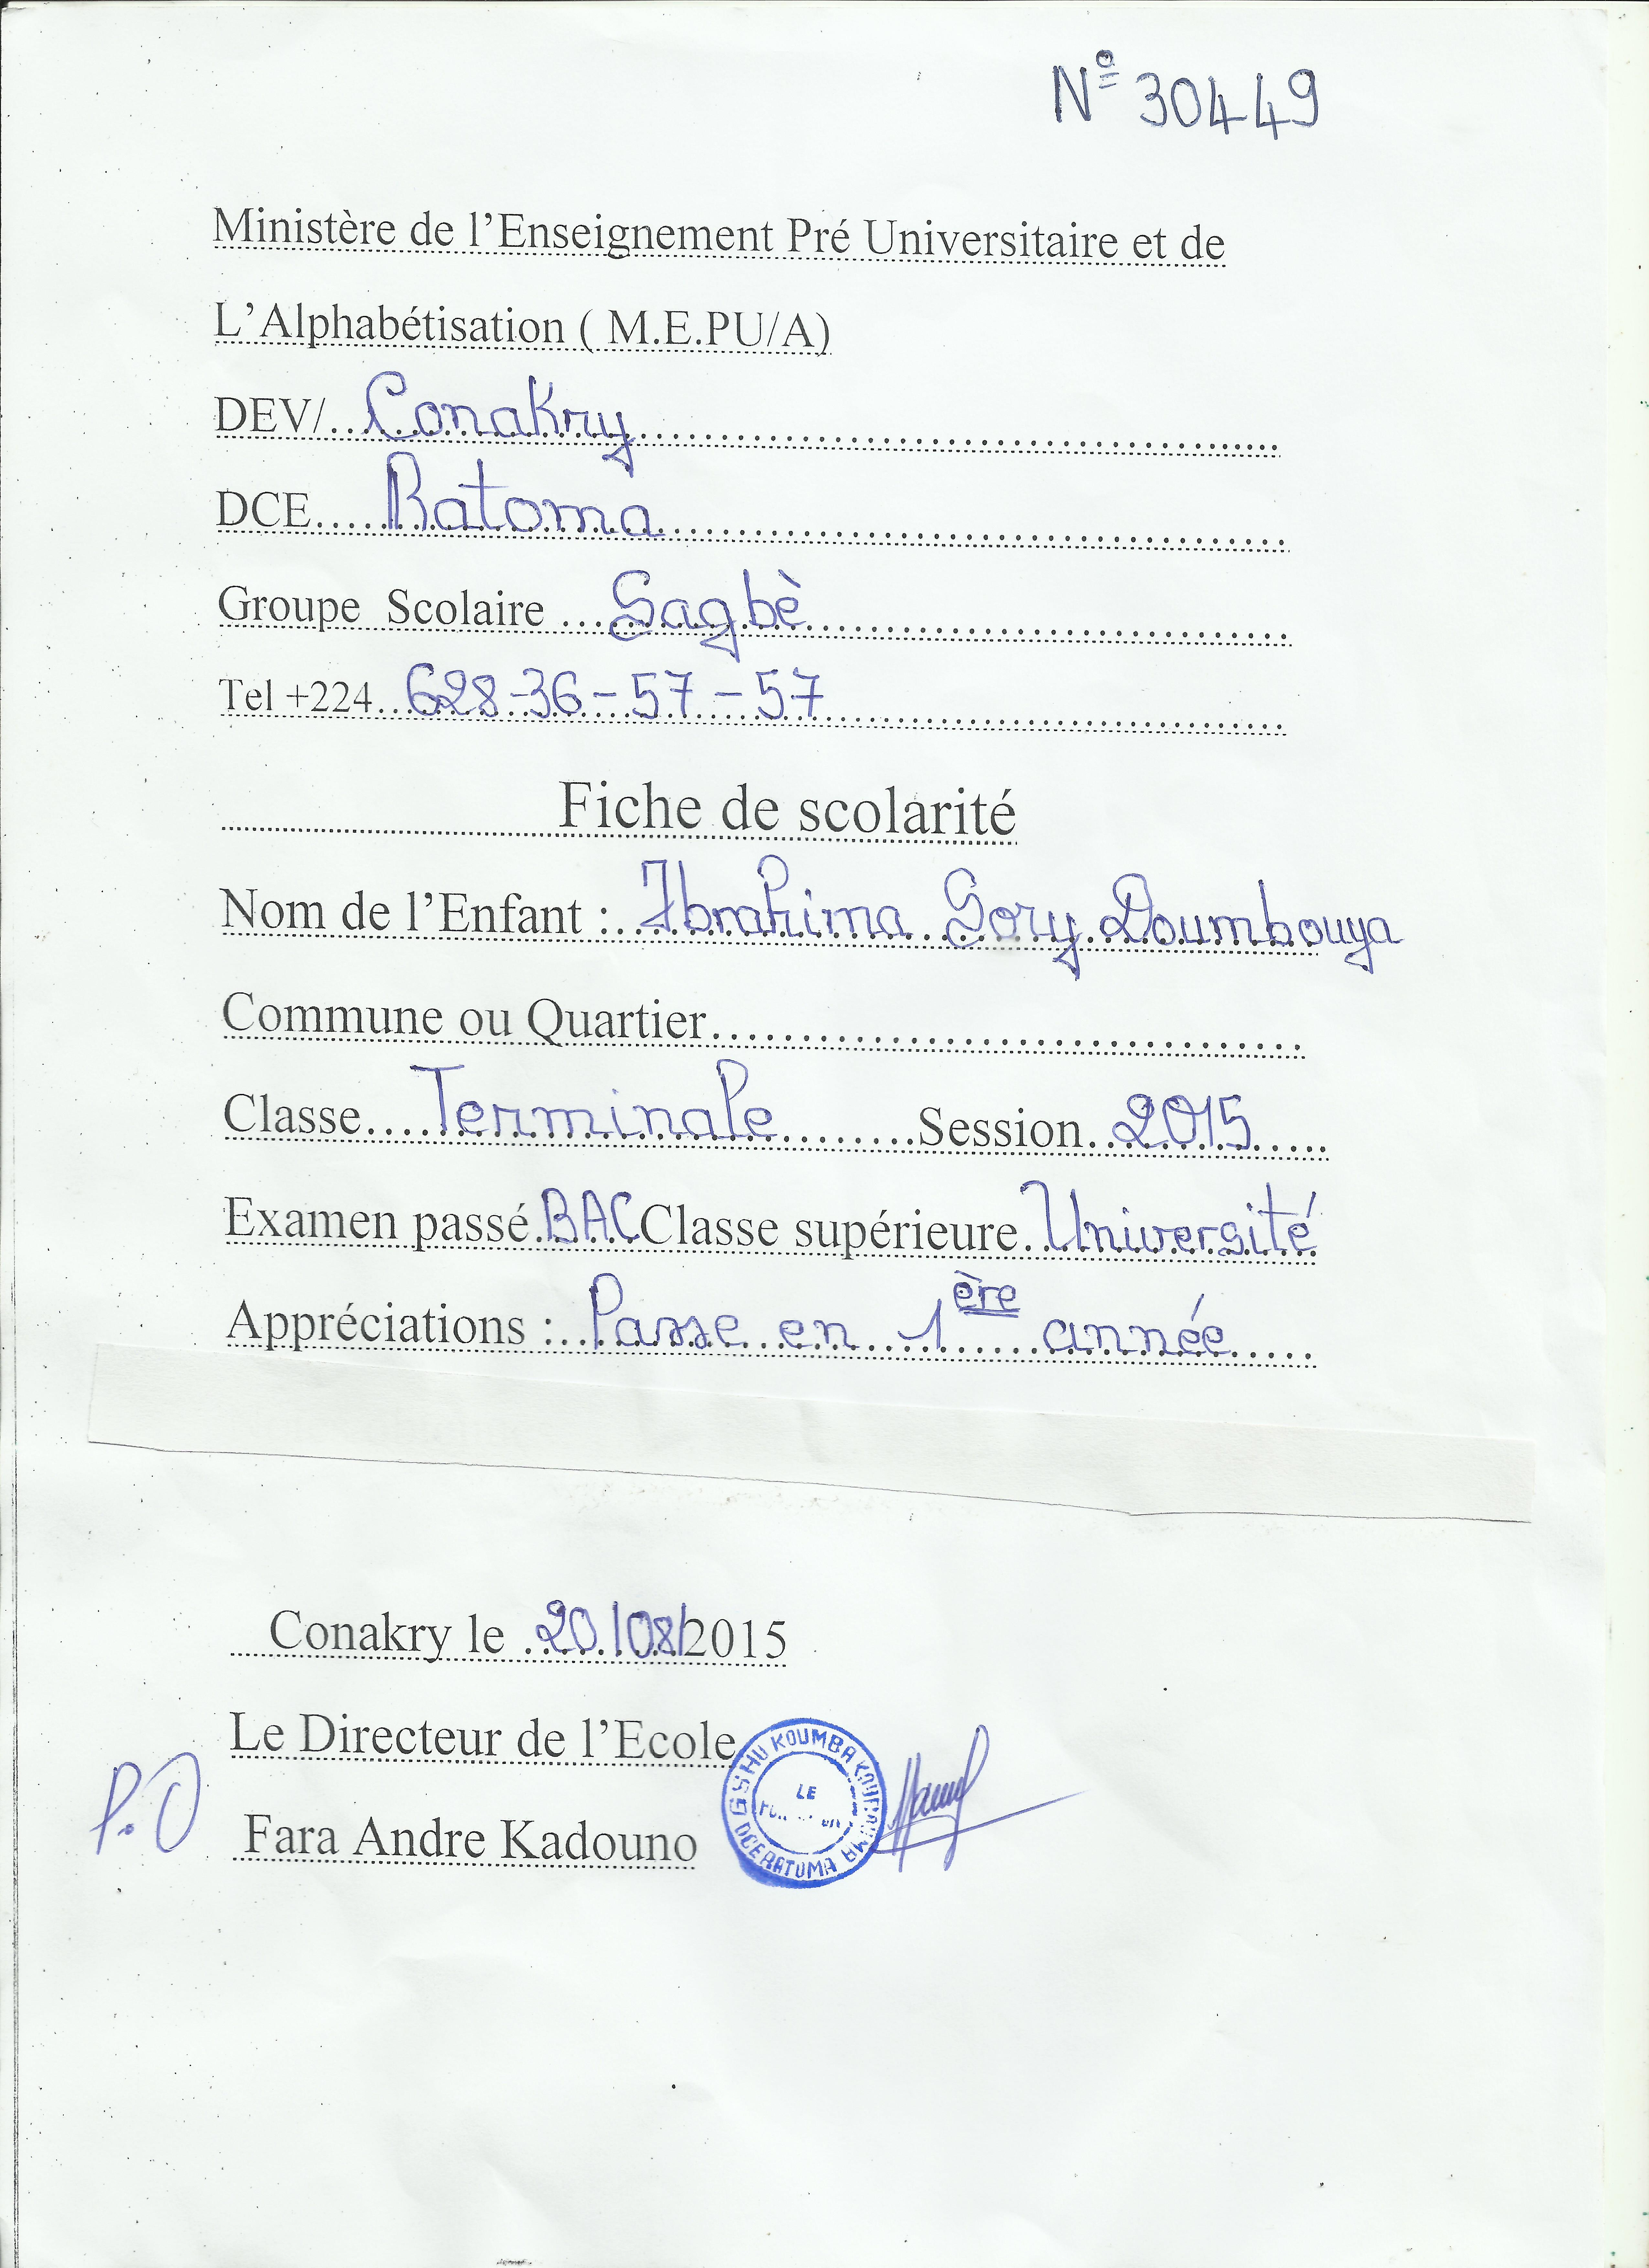 N° 30449
Ministère de l'Enseignement Pré Universitaire et de
L'Alphabétisation ( M.E.PU/A)
DEV/...Conakry
DCE.....Ratoma
Groupe Scolaire ...Sagbè
Tel +224...628-36-57-57
Fiche de scolarité
Nom de l'Enfant :..Ibrahima Sory Doumbouya
Commune ou Quartier
Classe....Terminale........Session..2015.....
Examen passé.BAC Classe supérieure.Université
Appréciations :..Passe en 1ère année.....
Conakry le ..20/08/2015
Le Directeur de l'Ecole
P.O
Fara Andre Kadouno
GSHU KOUMBA
DCE RATOMA
LE